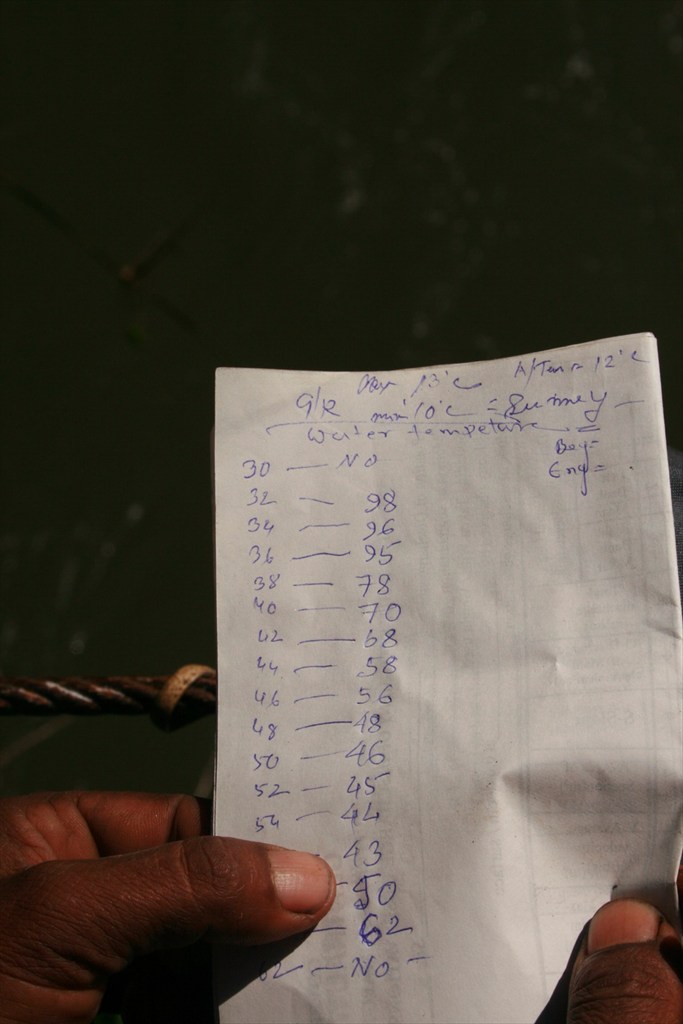 Max 13°C A/Tem = 12°C
G/R min 10°C = Surwey —
Water tempeture =
Beg=
30 — No Eng= .
32 — 98
34 — 96
36 — 95
38 — 78
40 — 70
42 — 68
44 — 58
46 — 56
48 — 48
50 — 46
52 — 45
54 — 44
43
— 50
— 62
62 — No —